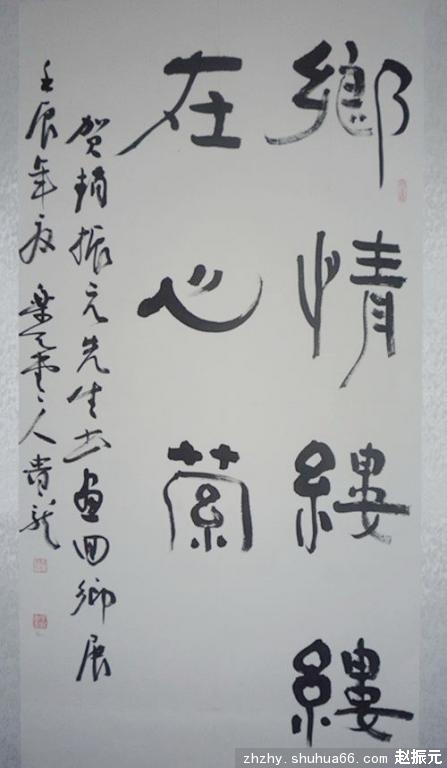 鄉情縷縷
在心萦
贺趙振元先生书画回鄉展
壬辰年夏 人貴龍
zhzhy.shuhua66.com 赵振元